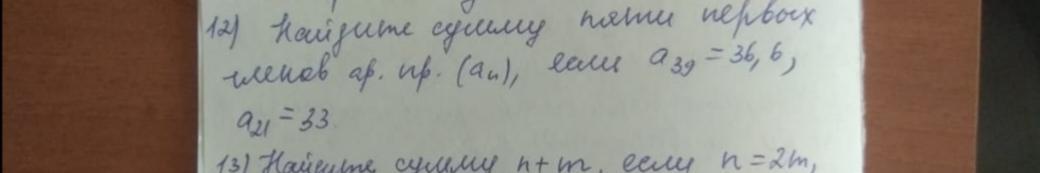 12) Найдите сумму пяти первых
членов ар. пр. (aₙ), если a₃₉ = 36,6,
a₂₁ = 33.
13) Найдите сумму n+m, если n = 2m,